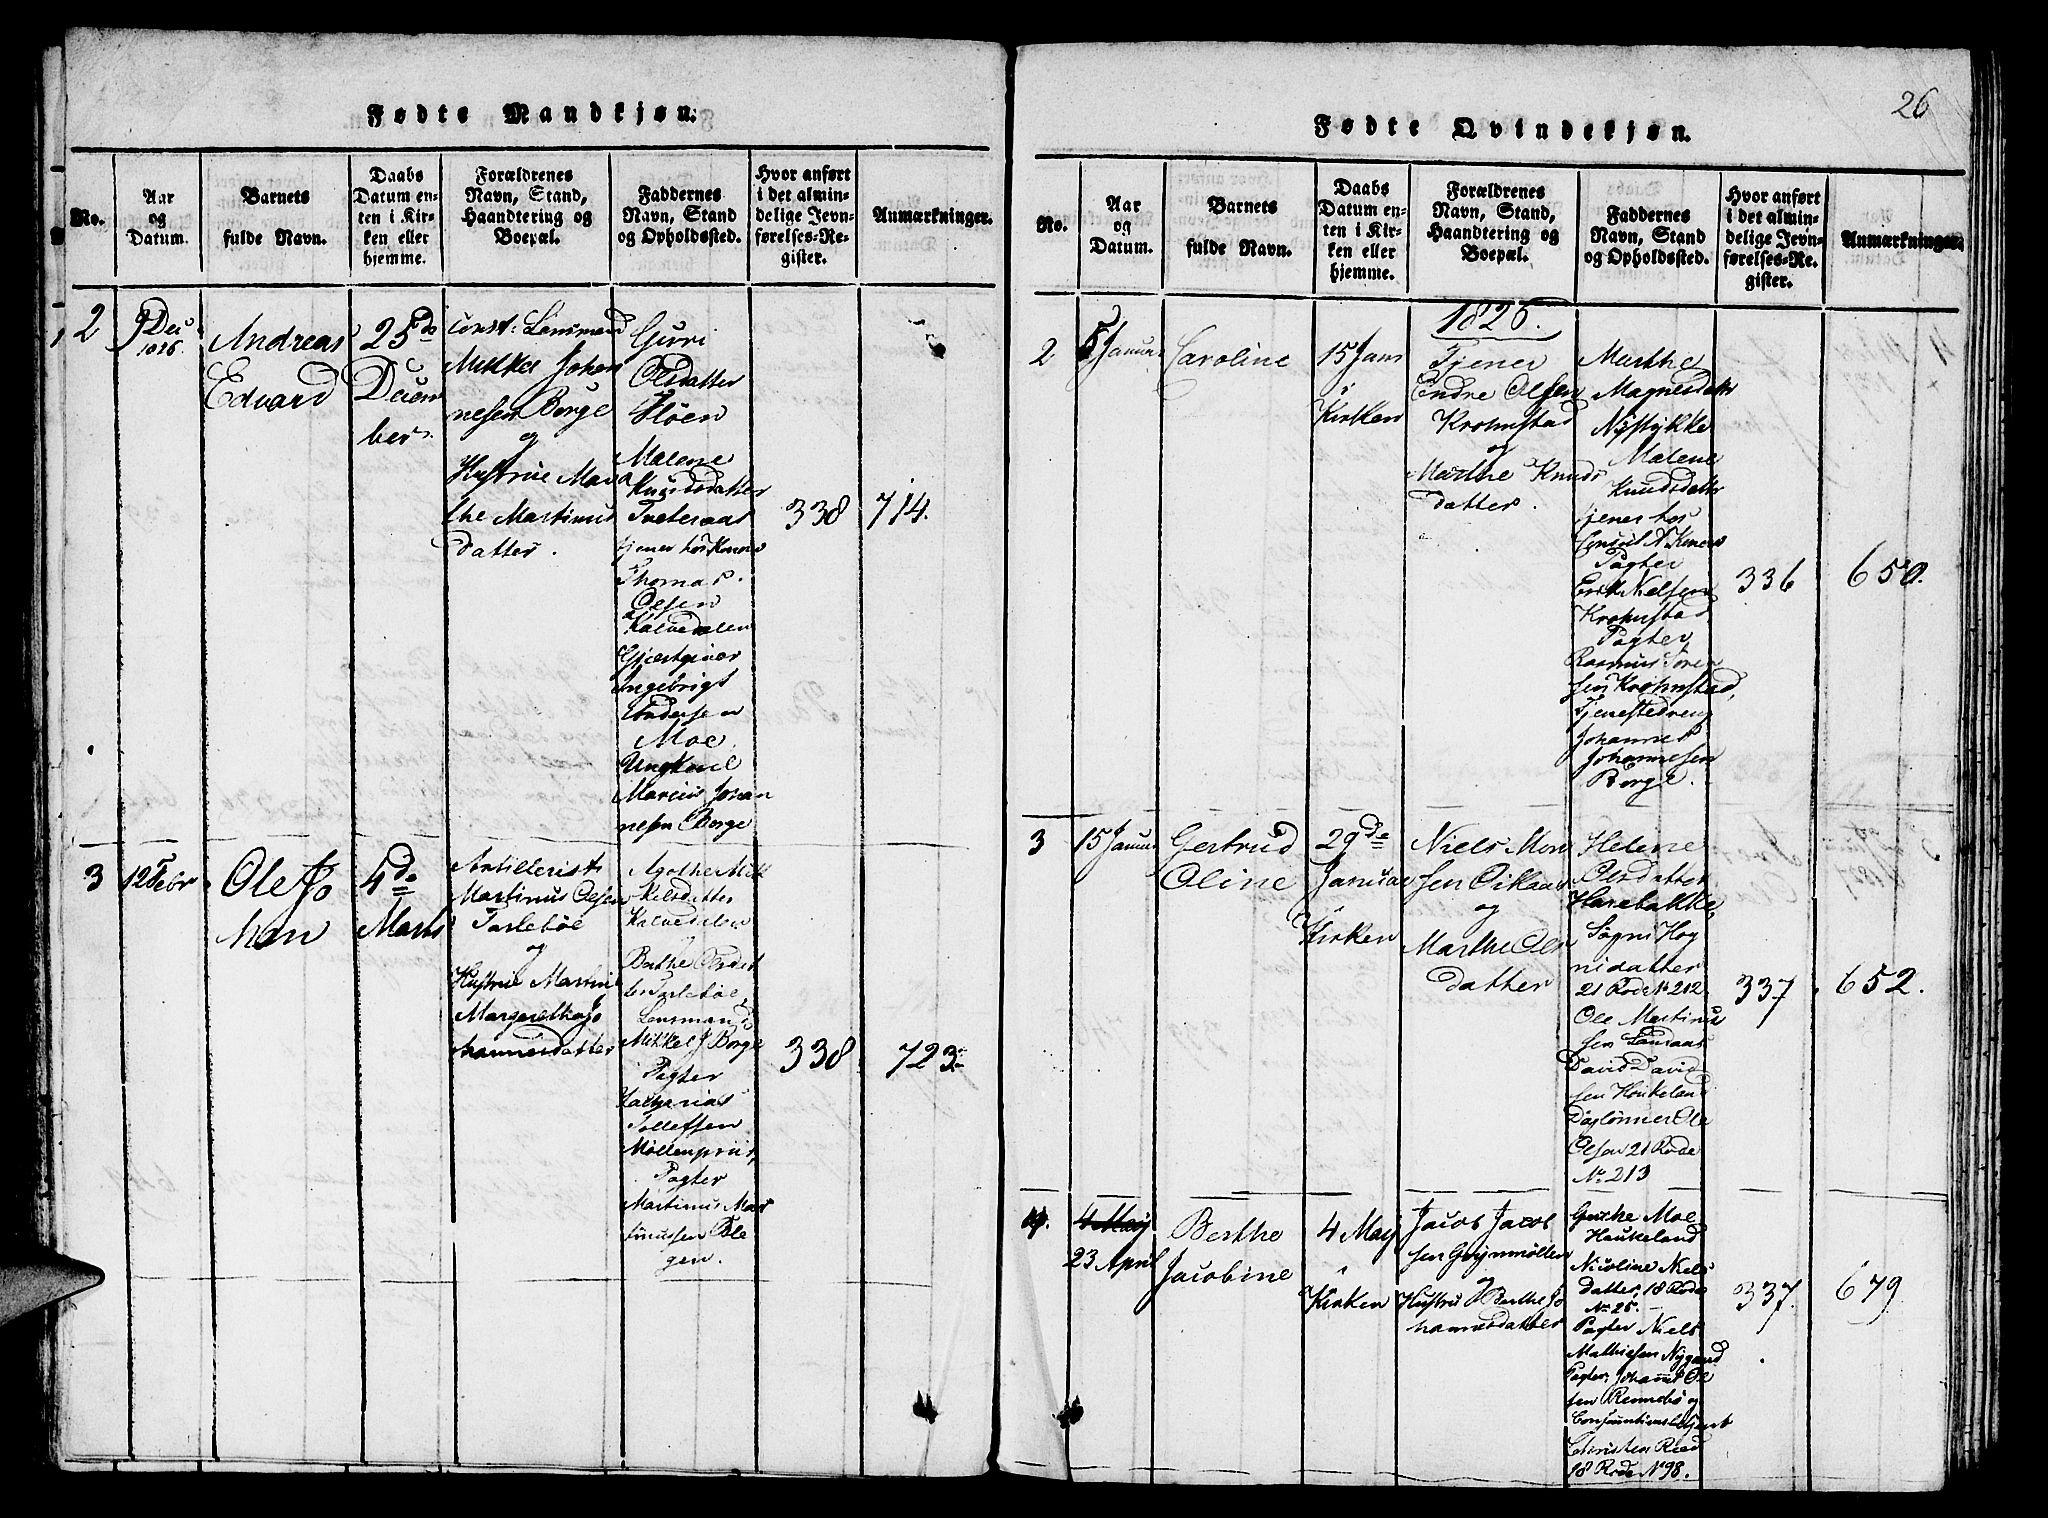 Fødte Mandkjøn.
No.
Aar
og
Datum.
Barnets
fulde Navn.
Daabs
Datum en-
ten i Kir-
ken eller
hjemme.
Forældrenes
Navn, Stand,
Haandtering og
Boepæl.
Faddernes
Navn, Stand
og Opholdssted.
Hvor anført
i det almin-
delige Jevn-
førelses-Re-
gister.
Anmærkninger.
2
9 Dec
Andreas
Edvard
25de
Decem
ber
const: Lensmand
Mikkel Johan
nesen Borge
og
Hystrue Mar
the Martinus
datter.
Gurri
Olsdatter
Fløen
Malene
Knudsdatter
Tveteraas
tjener hos
Thomas
Olsen
Kalvedalen
Gjæstgiver
Ingebrigt
Andersen
Moe
Ungkarl
Marcus Johan
nesen Borge
338
714.
3
12 Febr
Ole Jo
han
4de
Marts
Artillerist
Martinus Olsen
Tarlebøe
og
Hustrue Martin
Margrethe Jo
hannesdatter
Agothe Mik
kelsdatter
Kalvedalen
Berthe Olsdat
ter Tarlebøe
Lensmand
Mikkel J Borge
Pagter
Zacharias
Tollefsen
Møllenpriis,
Pagter
Martinus Mar
tinussen Ble
gen.
338
723
26
Fødte Qvindekjøn.
No.
Aar
og
Datum.
Barnets
fulde Navn.
Daabs
Datum en-
ten i Kir-
ken eller
hjemme.
Forældrenes
Navn, Stand,
Haandtering og
Boepæl.
Faddernes
Navn, Stand
og Opholdssted.
Hvor anført
i det almin-
delige Jevn-
førelses-Re-
gister.
Anmærkninger.
1826.
2
5 Januar
Caroline
15 Jan
i
Kirken
Tjener
Endre Olsen
Krohnstad
og
Marthe Knuds
datter.
Marthe
Magnesdatt
Nystykke
Malene
Knudsdatter
tjener hos
Consul A
Pagter
Erik Nielsen
Krohnstad
Pagter
Rasmus Søren
sen Krohnstad,
Tjenestedreng
Johannes
Johannesen
Borge.
336
650.
3
15 Januar
Gertrud
Oline
29de
Januar
i
Kirken
Niels Mon
sen Eikaas
og
Marthe Ols
datter
Helene
Olsdatter
Harebakke,
Søgni Hog
nidatter
21 Rode No 212
Ole Martinus
sen
David David
sen Houkeland
Daglønner Ole
Olsen 21 Rode
No. 213
337
652.
4.
4 May
23 April
Berthe
Jacobine
4 May
i
Kirken
Jacob Jacob
sen Grynmøllen
og
Hustru Berthe Jo
hannesdatter
Gurthe Moe
Haukeland
Nicoline Niels
datter, 18 Rode
No. 25.
Pagter Niels
Mathiesen Nygaard
Pagter Johannes Ol
sen Rennebø og
Consumtionsbetjent
Christen Ried
18 Rode No 98.
337.
679